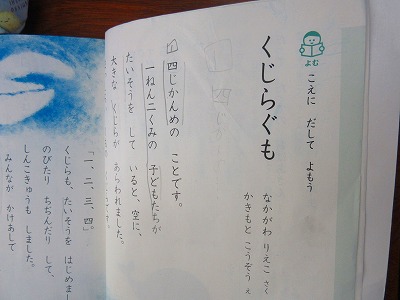 よむ
こえに だして よもう
くじらぐも
なかがわ りえこ さく
かきもと こうぞう え
四じか
四じかんめの ことです。
一ねん二くみの 子どもたちが
たいそうを して いると、空に、
大きな くじらが あらわれました。
「一、二、三、四。」
くじらも、たいそうを はじめまし
のびたり ちぢんだり して、
しんこきゅうも しました。
みんなが かけあして